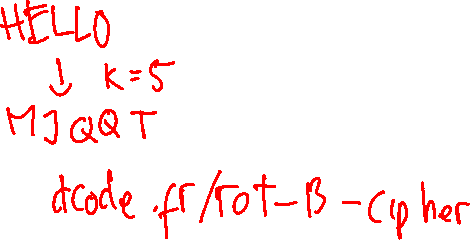 HELLO
↓ K=5
MJQQT
dcode.fr/rot-13-cipher